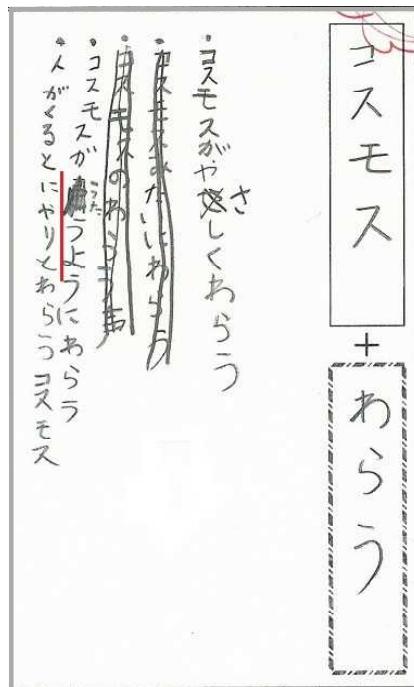 コスモス
+
わらう
・コスモスがやさしくわらう
・コスモスみたいにわらう
・コスモスのわらう声
・コスモスがうたうようにわらう
・人がくるとにやりとわらうコスモス